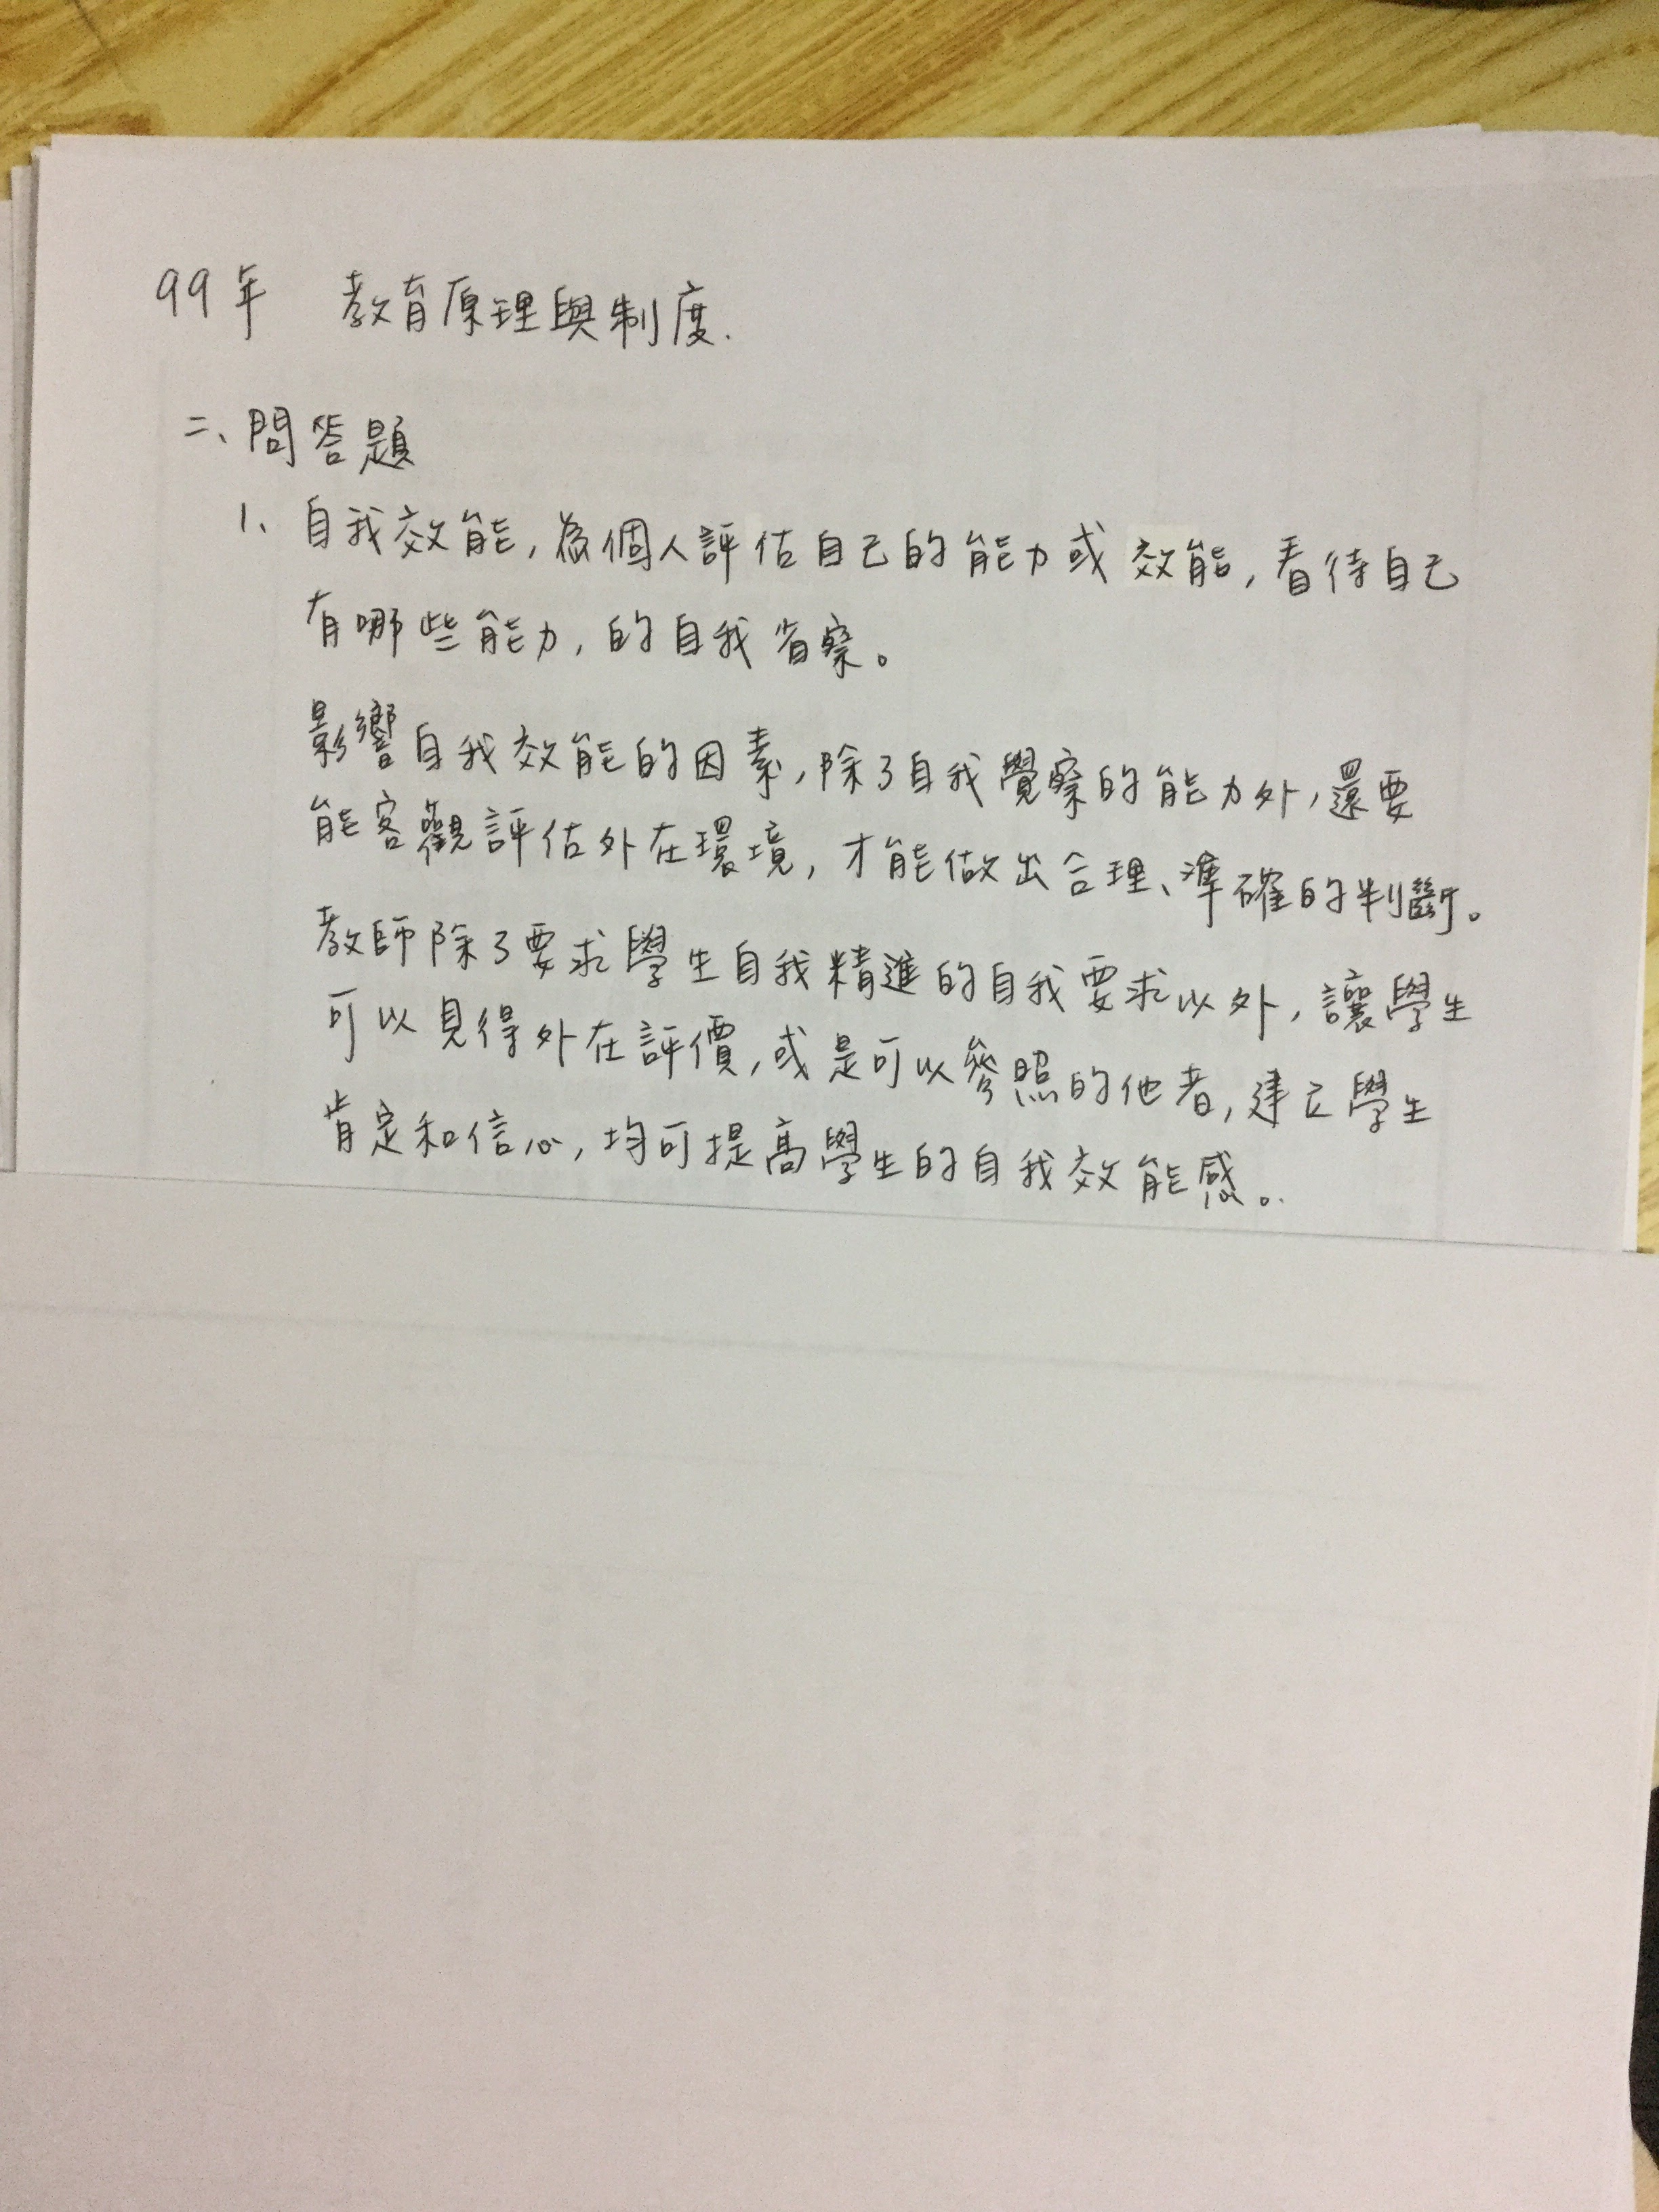 99年 教育原理與制度.
二、問答題
1、自我效能,為個人評估自己的能力或效能,看待自己
有哪些能力,的自我省察。
影響自我效能的因素,除了自我覺察的能力外,還要
能客觀評估外在環境,才能做出合理、準確的判斷。
教師除了要求學生自我精進的自我要求以外,讓學生
可以見得外在評價,或是可以參照的他者,建立學生
肯定和信心,均可提高學生的自我效能感。